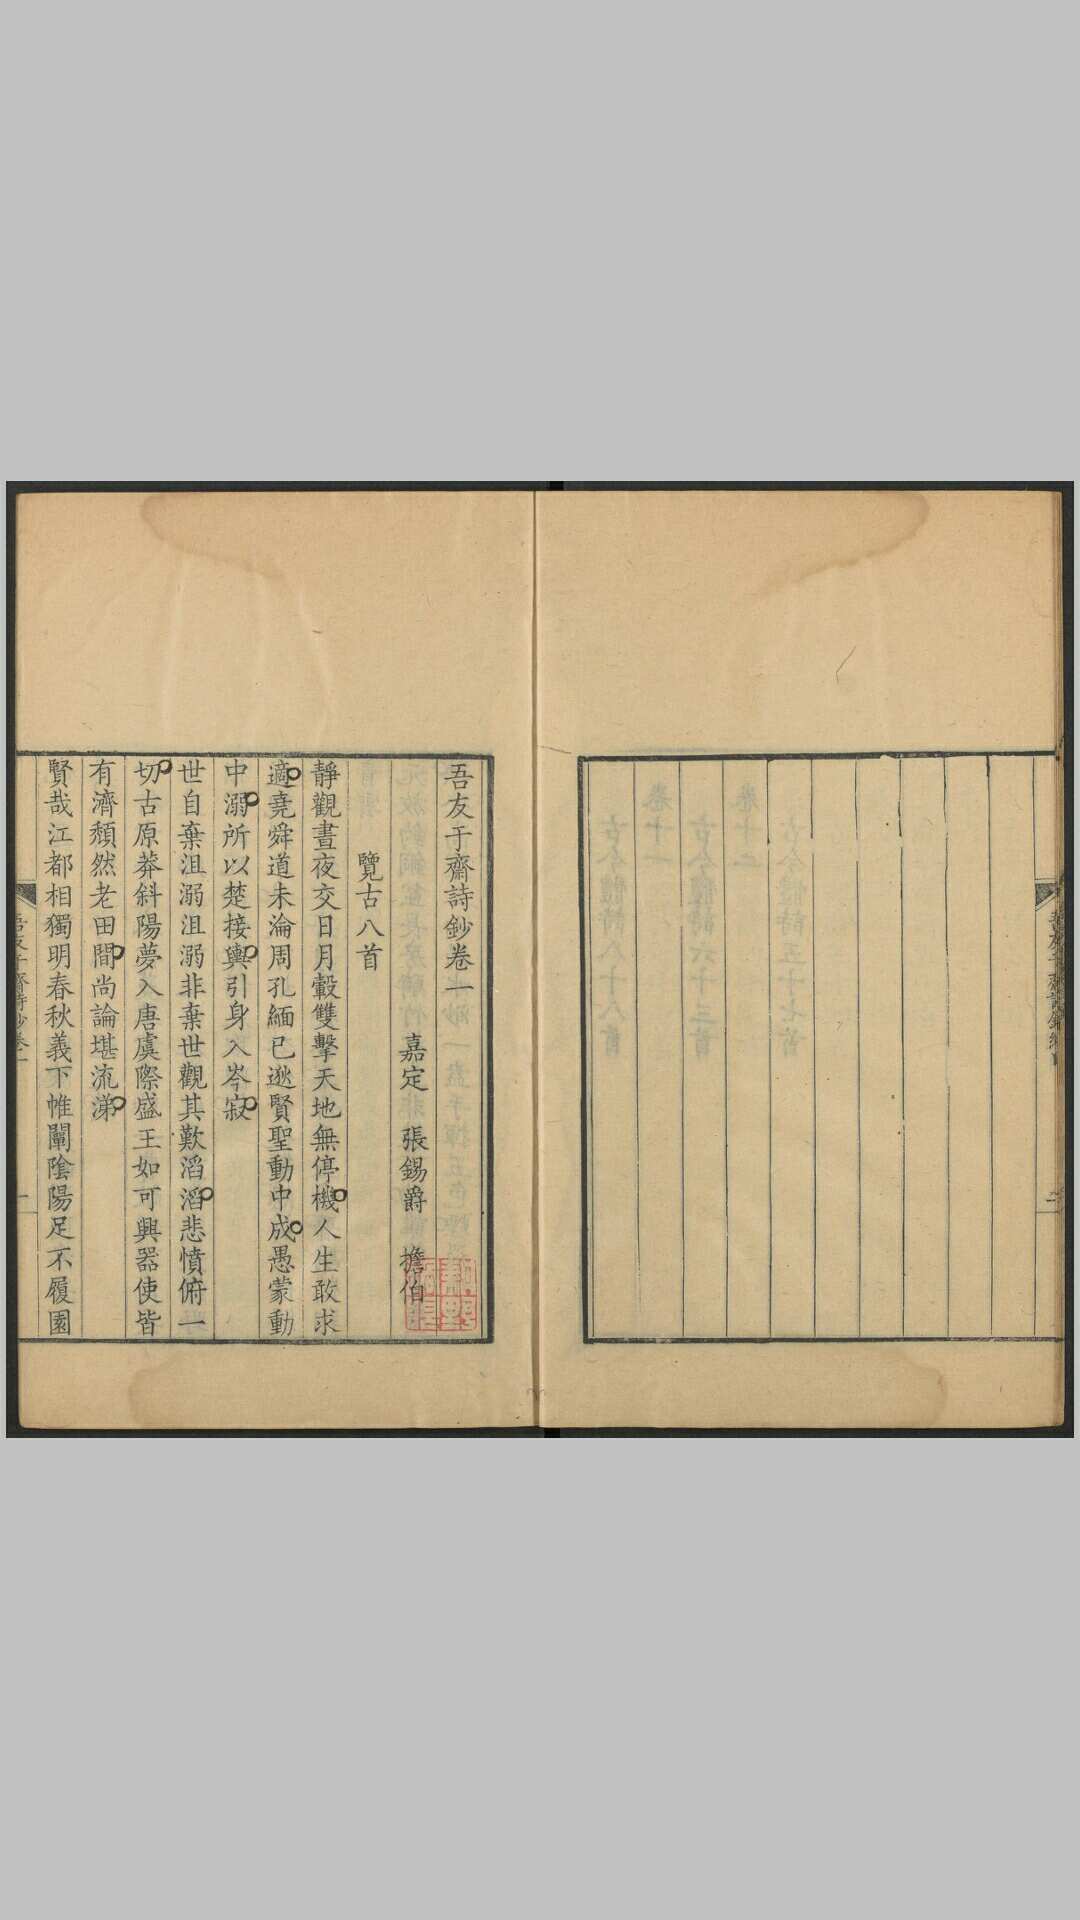 吾友于齋詩鈔卷一
嘉定　張錫爵　擔伯
覽古八首
靜觀晝夜交日月轂雙擊天地無停機人生敢求
適堯舜道未淪周孔緬已逖賢聖動中成愚蒙動
中溺所以楚接輿引身入岑寂
世自棄沮溺沮溺非棄世觀其歎滔滔悲憤俯一
切古原莽斜陽夢入唐虞際盛王如可興器使皆
有濟頹然老田間尚論堪流涕
賢哉江都相獨明春秋義下帷闡陰陽足不履園
吾友于齋詩鈔卷一
一